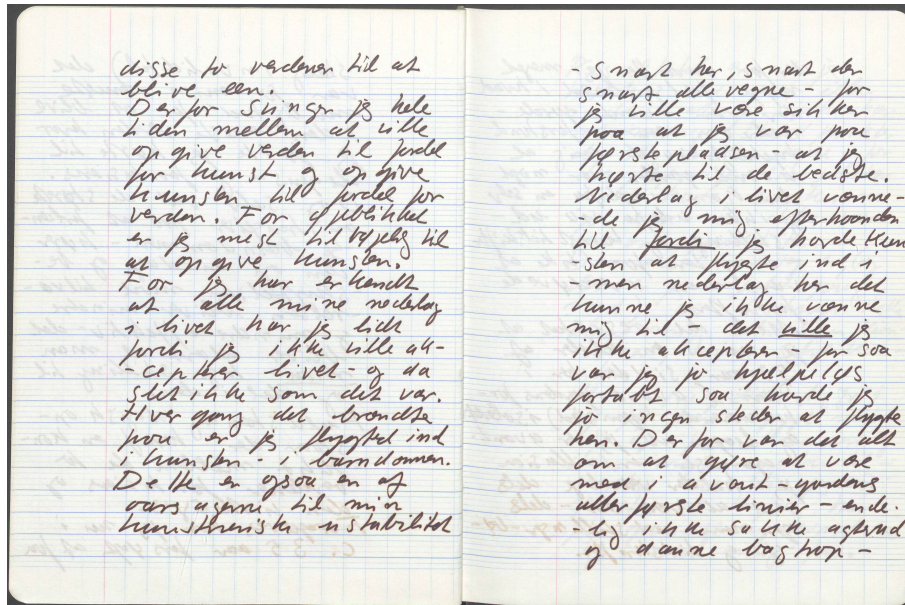 disse to verdener til at
blive een.
Derfor svinger jeg hele
tiden mellem at ville
opgive verden til fordel
for kunst og opgive
kunsten til fordel for
verden. For øjeblikket
er jeg mest tilbøjelig til
at opgive kunsten.
For jeg har erkendt
at alle mine nederlag
i livet har jeg lidt
fordi jeg ikke ville ak-
-cepterer livet - og da
slet ikke som det var.
Hver gang det brændte
paa er jeg flygted ind
i kunsten - i barndommen.
Dette er ogsaa en af
aarsagerne til min
kunstneriske ustabilitet
- snart her, snart der
snart alle vegne - for
jeg ville være sikker
paa at jeg var paa
førstepladsen - at jeg
hørte til de bedste.
Nederlag i livet vænne-
-de jeg mig efterhaanden
til fordi jeg havde kun
-sten at flygte ind i
- men nederlag her det
kunne jeg ikke vænne
mig til - det ville jeg
ikke akcepterer - for saa
var jeg jo hjælpeløs
fortabt saa havde jeg
jo ingen steder at flygte
hen. Derfor var det alt
om at gøre at være
med i avant-gardens
allerførste linier - ende-
-lig ikke sakke agterud
og danne bagtrop -